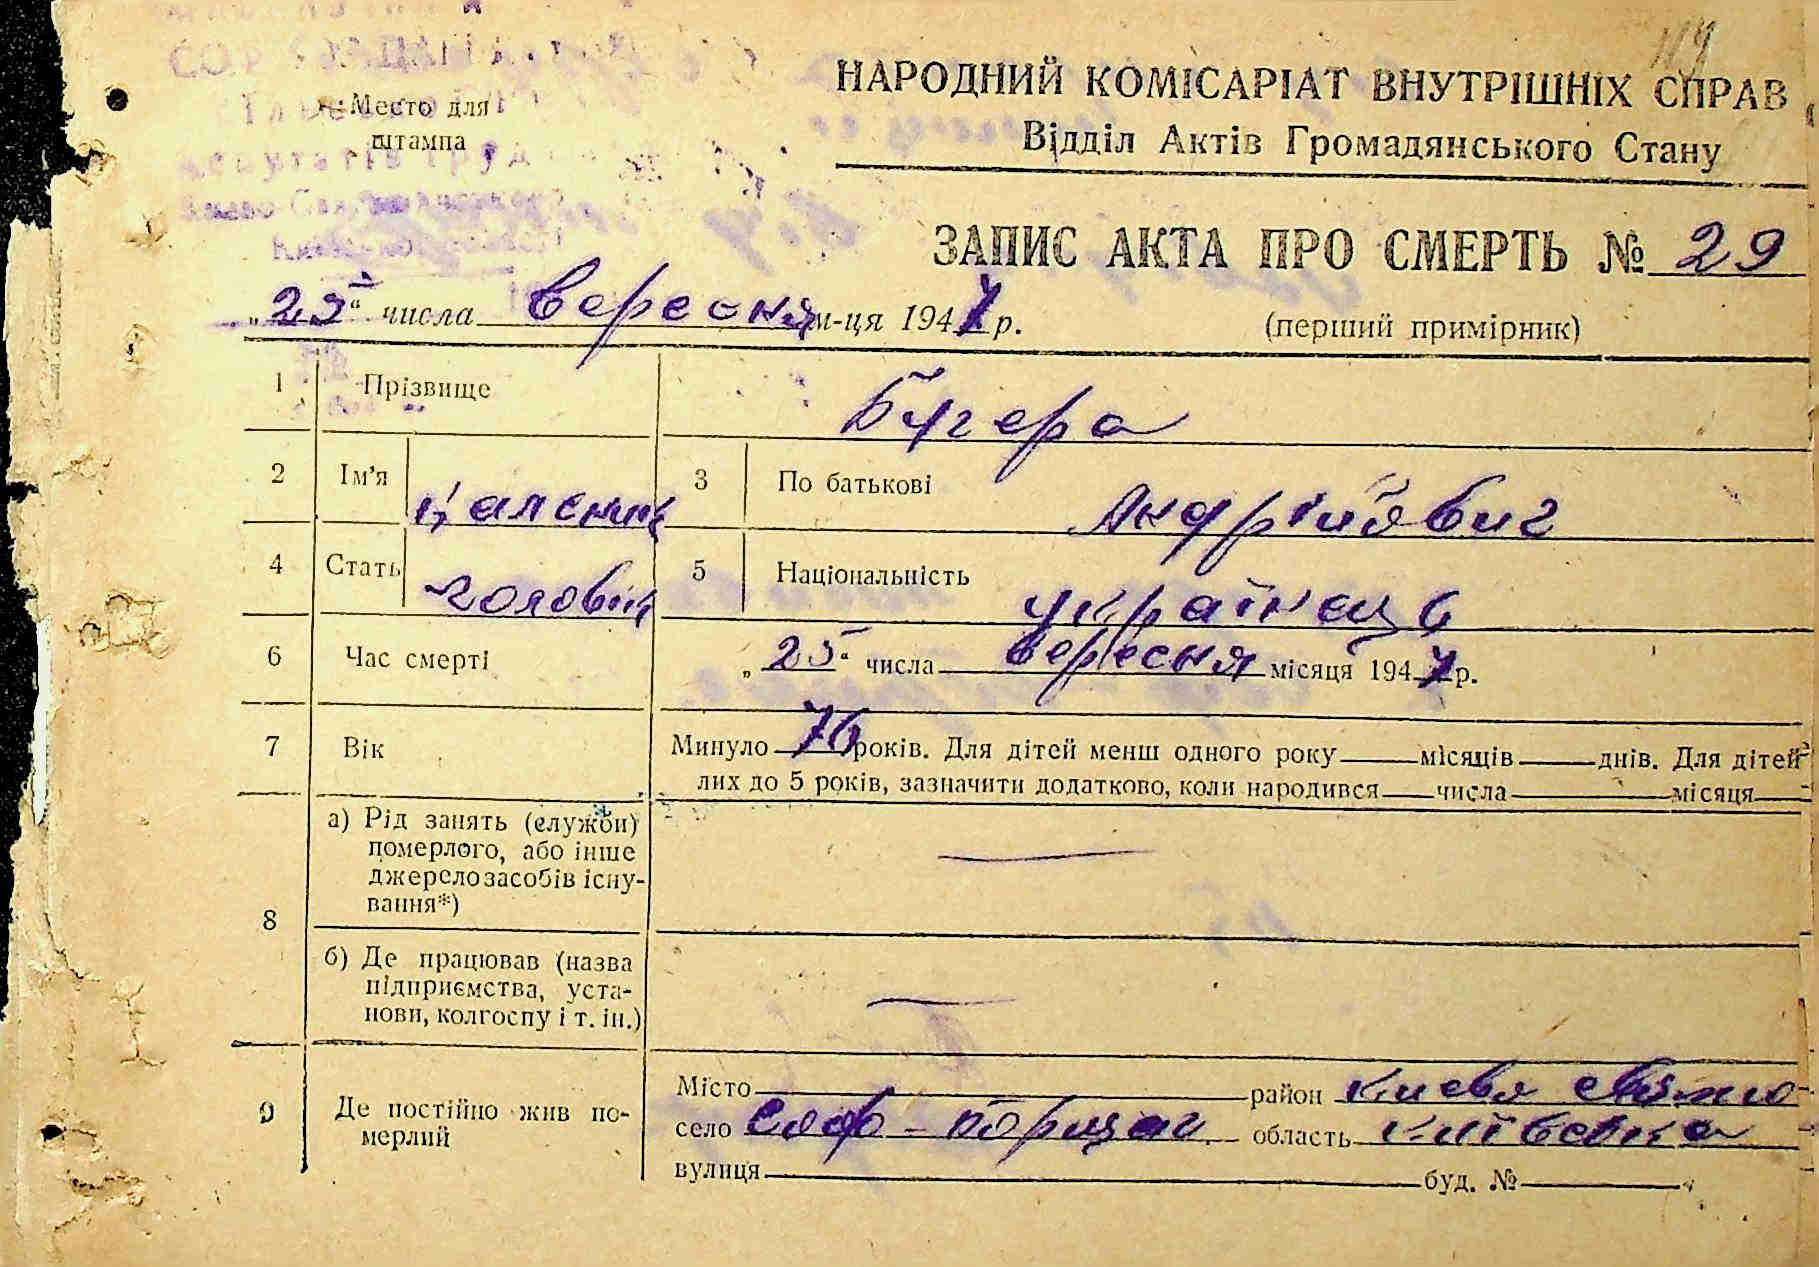 119
Место для
штампа
НАРОДНИЙ КОМІСАРІАТ ВНУТРІШНІХ СПРАВ
Відділ Актів Громадянського Стану
ЗАПИС АКТА ПРО СМЕРТЬ № 29
„25“ числа вересня м-ця 1947 р.
(перший примірник)
1 Прізвище Бугера
2 Ім'я 3 По батькові Андрійович
4 Стать чоловіч 5 Національність українець
6 Час смерті „25“ числа вересня місяця 1947 р.
7 Вік Минуло 76 років. Для дітей менш одного року місяців днів. Для дітей
лих до 5 років, зазначити додатково, коли народився числа місяця
8 а) Рід занять (служби)
померлого, або інше
джерело засобів існу-
вання*) —
б) Де працював (назва
підприємства, уста-
нови, колгоспу і т. ін.) —
9 Де постійно жив по-
мерлий
Місто район Києво Святош
село Соф - Борщаг. область Київська
вулиця буд. №